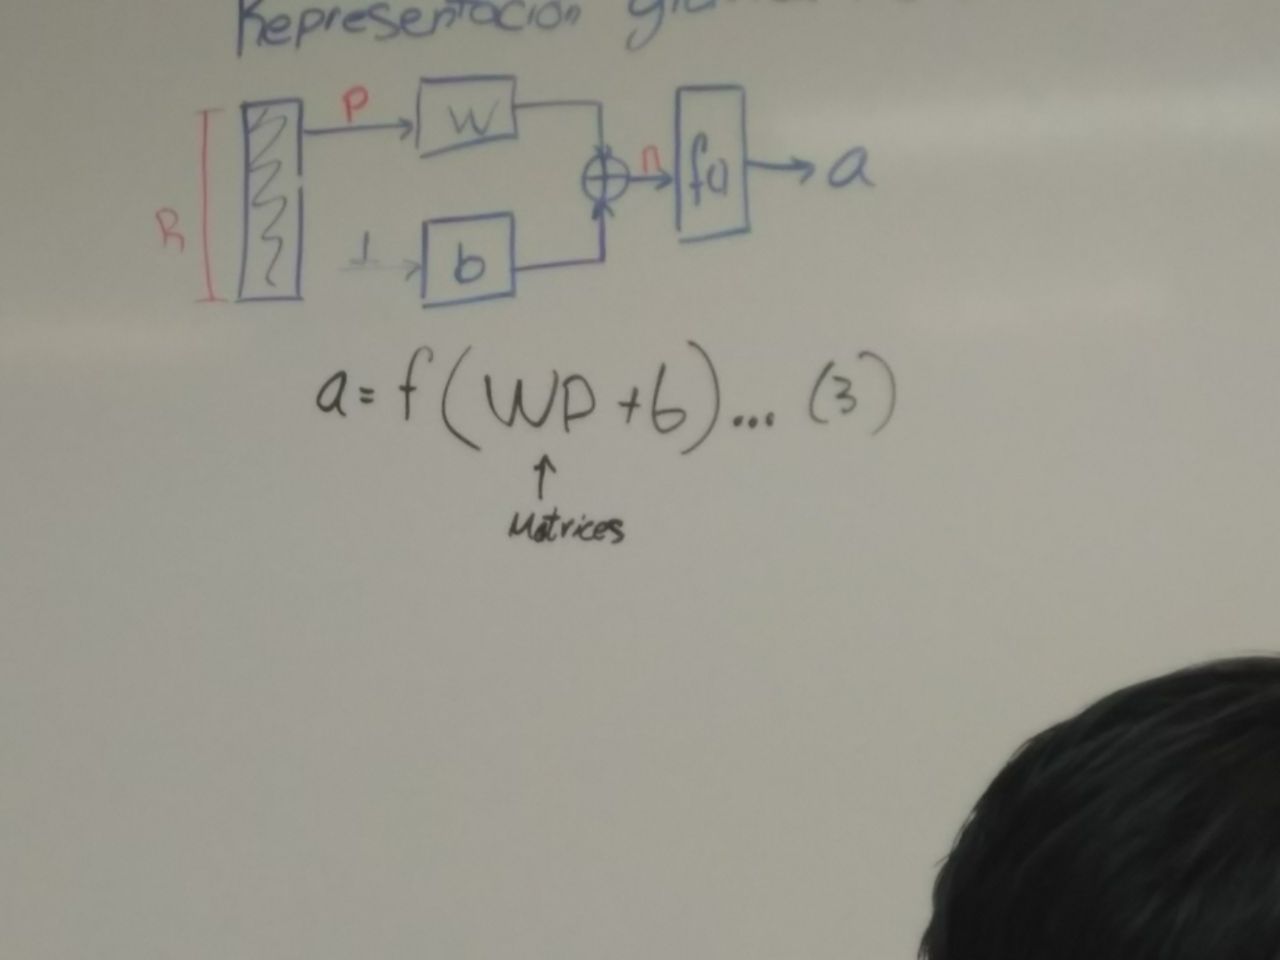 Representación
P
W
n
fa
a
R
1
b
a = f(WP + b)... (3)
↑
Matrices